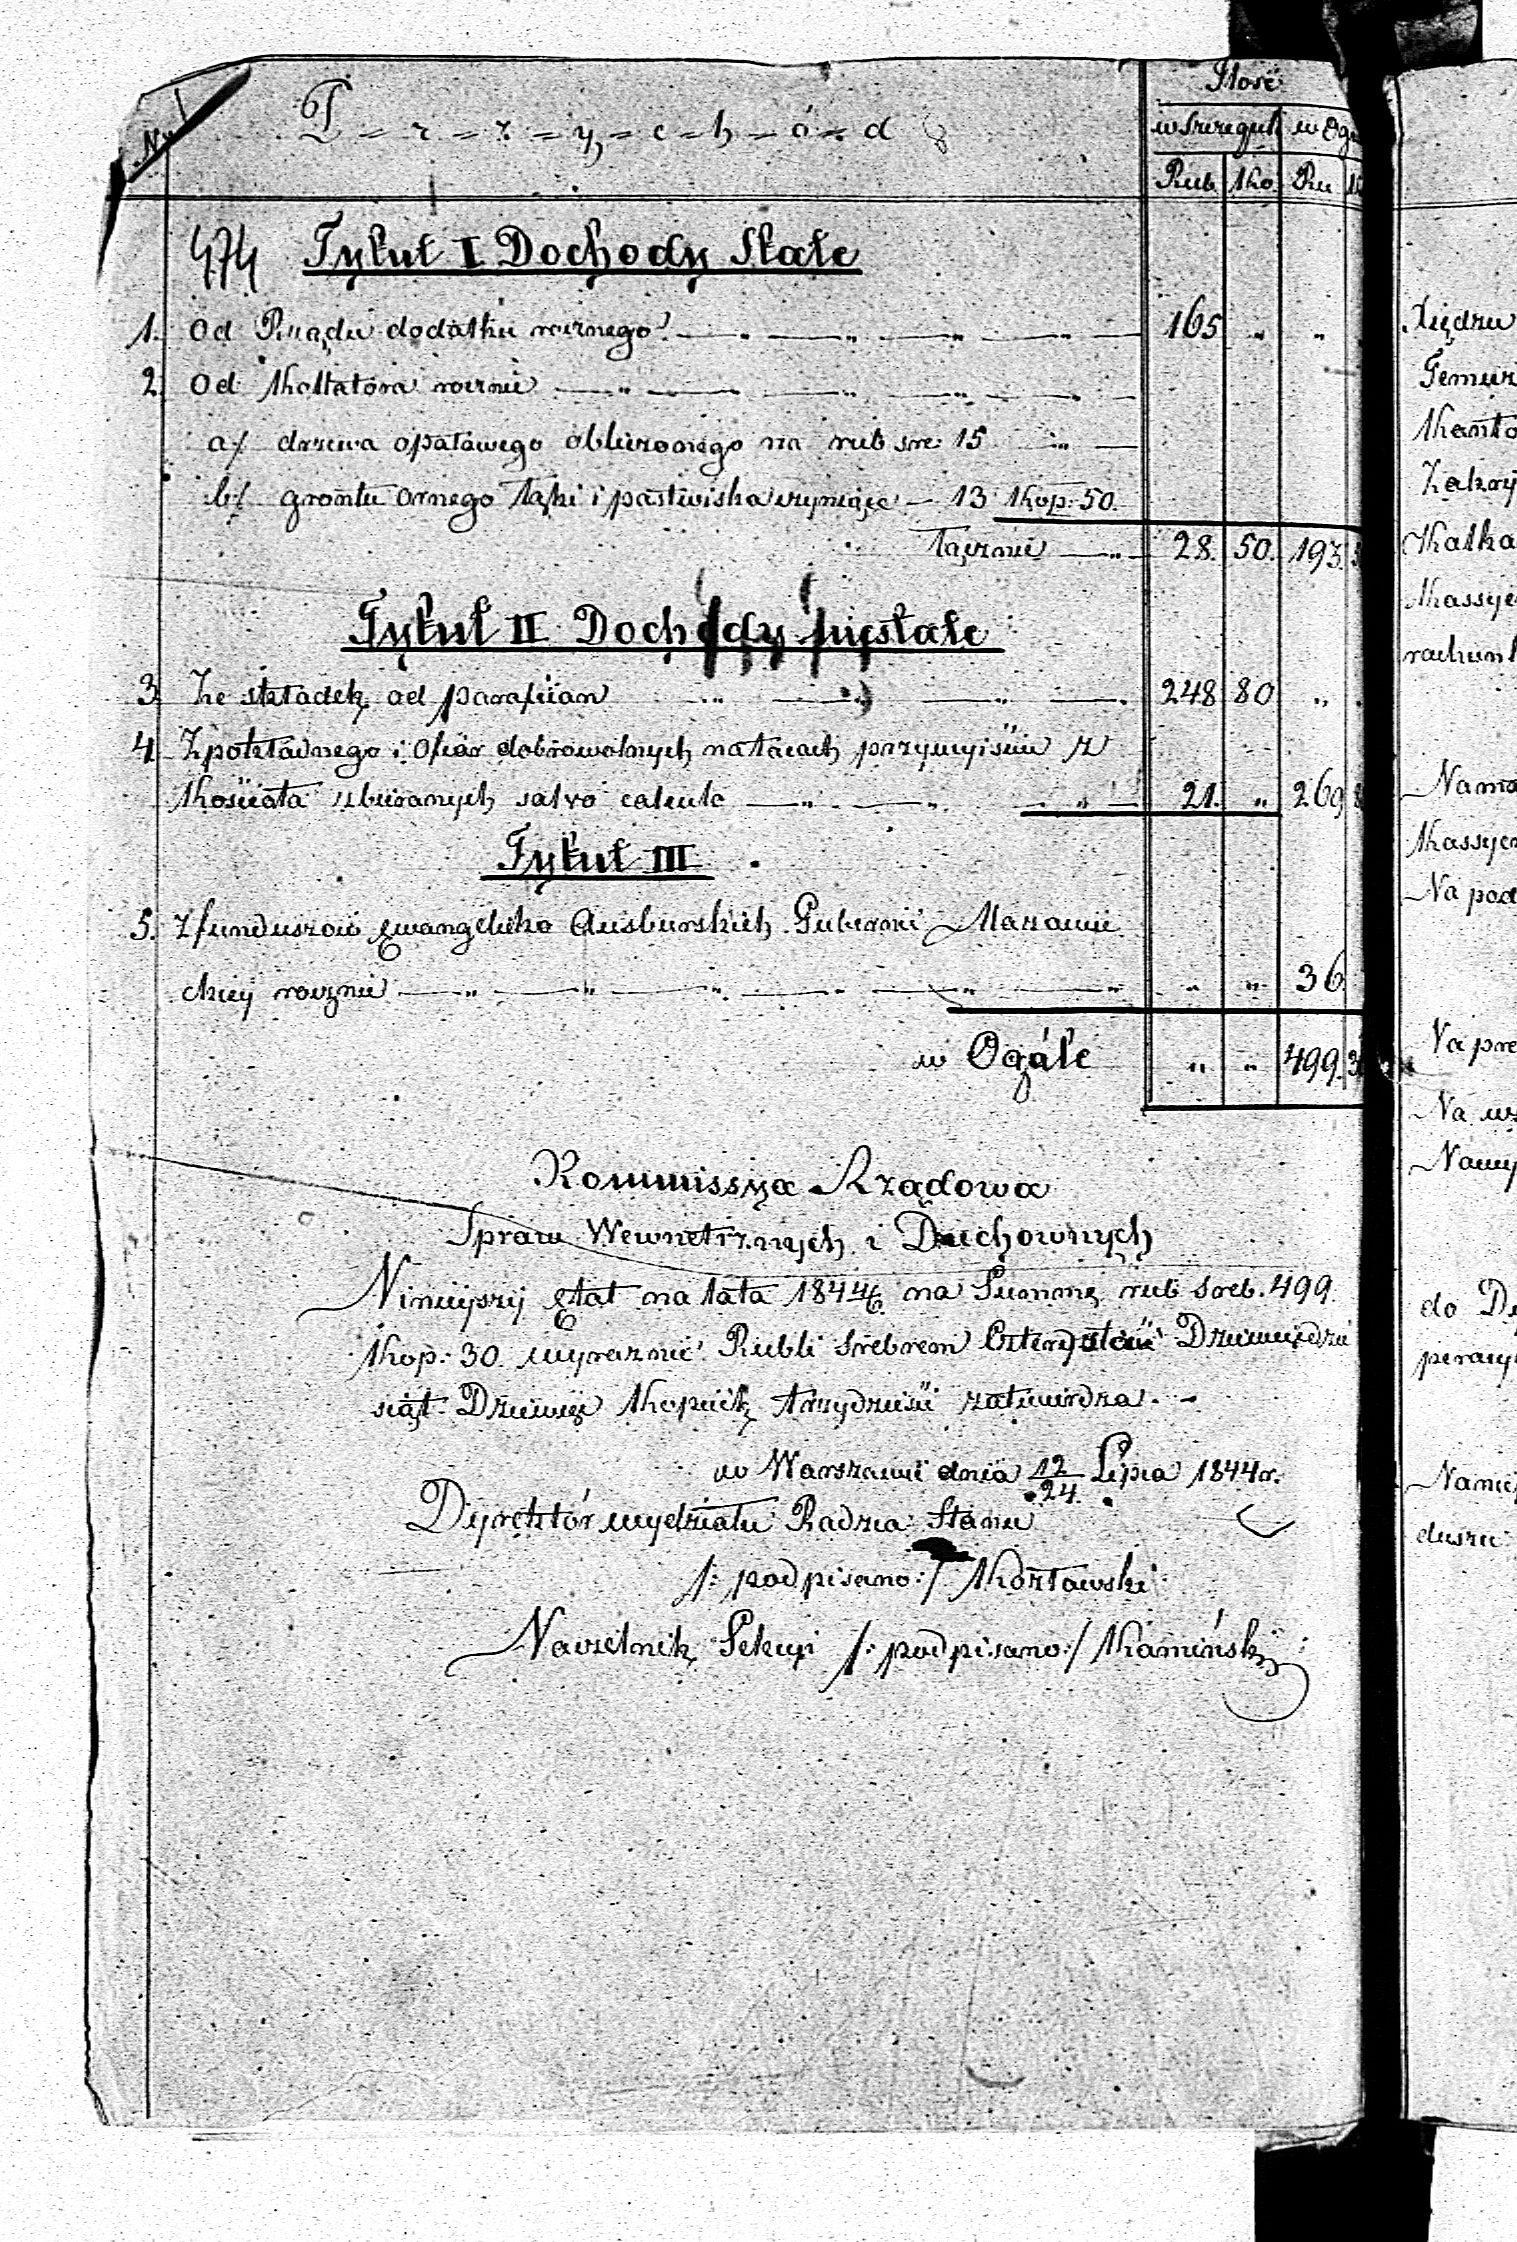 Ilość
N. P-r-z-y-c-h-ó-d w Szczegule w Ogu
Rub. Ko. Ru K
474 Tytuł I Dochody Stałe
1. Od Rządu dodatku rocznego 165 " "
2. Od Kollatora rocznie
a/ drzewa opałowego obliczonego na rub sre: 15 "
b/ grontu ornego łąki i pastwiska czyniące 13 Kop: 50.
Łącznie 28. 50. 193.
Tytuł II Dochody niestałe
3 Ze składek od parafiian 248 80 "
4 Z pokładnego i Ofiar dobrowolnych na tacach przy wyiściu z
Kościoła zbieranych salvo calculo 21. " 269
Tytuł III
5. Z funduszów Ewangelicko Ausburskich Gubernii Mazowie
ckiej rocznie " " 36
w Ogóle " " 499. 3
Kommissya Rządowa
Spraw Wewnetrznych i Duchownych
Ninieyszy Etat na lata 184 4/6 na Summę rub sreb. 499
Kop: 30 wyraznie Rubli srebrem Czterysta Dziewiędzie
siąt Dziewięć Kopiiek trzydzieści zatwierdza.
w Warszawie dnia 12/24 Lipca 1844 r.
Dyrektór wydziału Radzca Stanu
/: podpisano :/ Kozłowski
Naczelnik Sekcyi /: podpisano :/ Kamiński
Xiędzu
Kanto
Zakry
Kassye
rachunk
Kassye
Na pod
do
Na